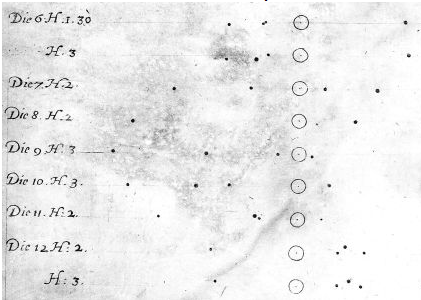 Die 6. H. 1. 30
H. 3
Die 7. H. 2
Die 8. H. 2
Die 9 H. 3
Die 10. H. 3.
Die 11. H: 2.
Die 12 H: 2.
H: 3.